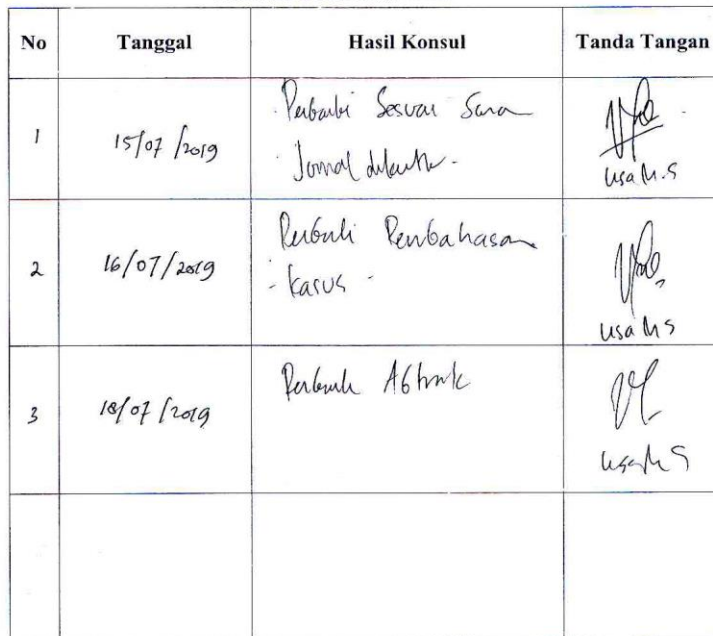 No Tanggal Hasil Konsul Tanda Tangan
1 15/07/2019 Perbaiki Sesuai Saran
Jurnal
usa M.S
2 16/07/2019 Perbaiki Pembahasan
- kasus -
usa M S
3 18/07/2019 Perbaiki Abstrak
usa M S